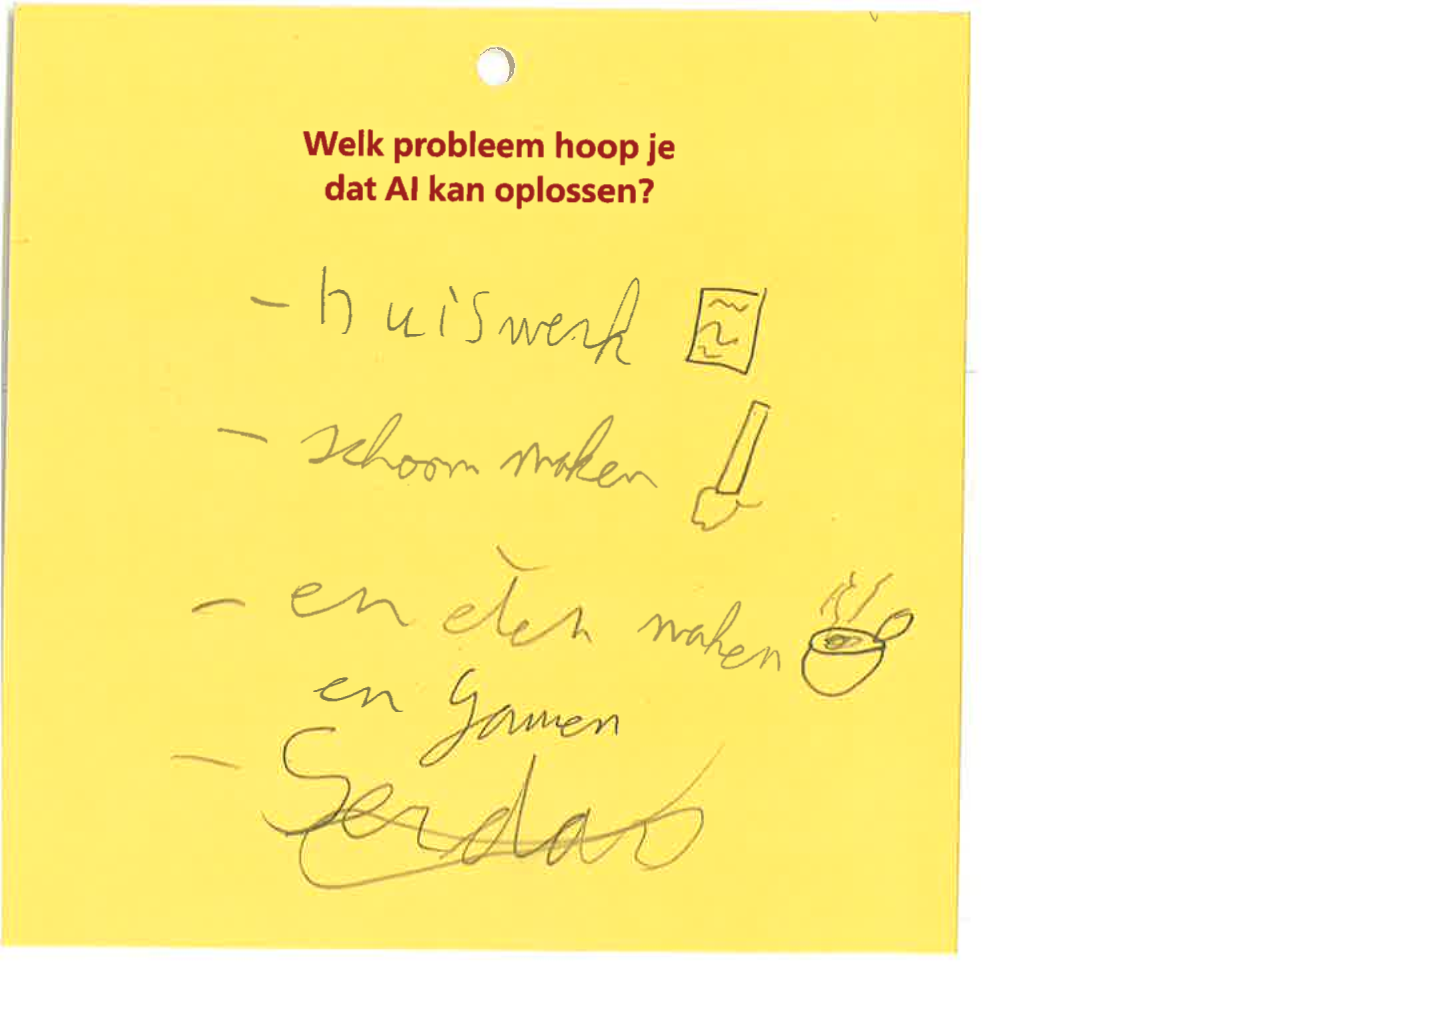 Welk probleem hoop je
dat AI kan oplossen?
- huiswerk
- schoom maken
- en eten maken
en gamen
-